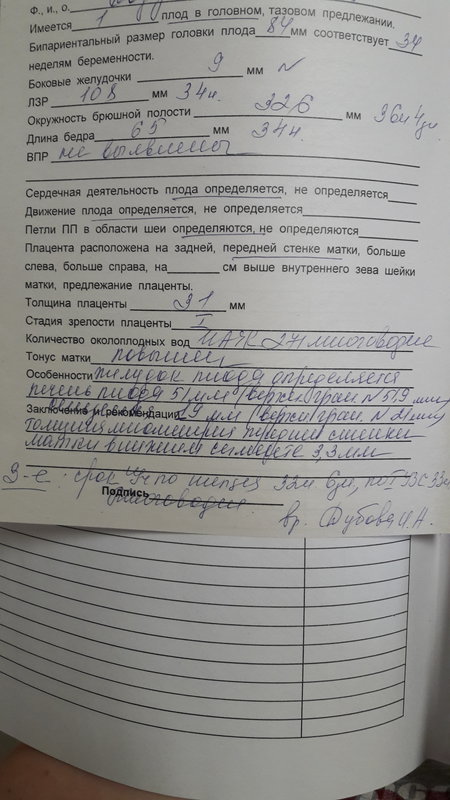 Ф., и., о.
Имеется 1 плод в головном, тазовом предлежании.
Бипариентальный размер головки плода 84 мм соответствует 34
неделям беременности.
Боковые желудочки 9 мм N
ЛЗР 108 мм 34н.
Окружность брюшной полости 326 мм 36н4дн
Длина бедра 65 мм 34н.
ВПР не выявлены
Сердечная деятельность плода определяется, не определяется
Движение плода определяется, не определяется
Петли ПП в области шеи определяются, не определяются
Плацента расположена на задней, передней стенке матки, больше
слева, больше справа, на см выше внутреннего зева шейки
матки, предлежание плаценты.
Толщина плаценты 31 мм
Стадия зрелости плаценты I
Количество околоплодных вод ИАЖ 271 многоводие
Тонус матки повышен
Особенности желудок плода определяется
печень плода 51 мм (верхн. гран N 51,9 мм)
Заключение и рекомендации 29 мм (верхн. гран. N 21 мм)
толщина миометрия передней стенки
матки в нижнем сегменте 3,3 мм
З-е: срок по 32н 6дн, по УЗС 33н
Подпись многоводие.
вр. Дубова И.А.